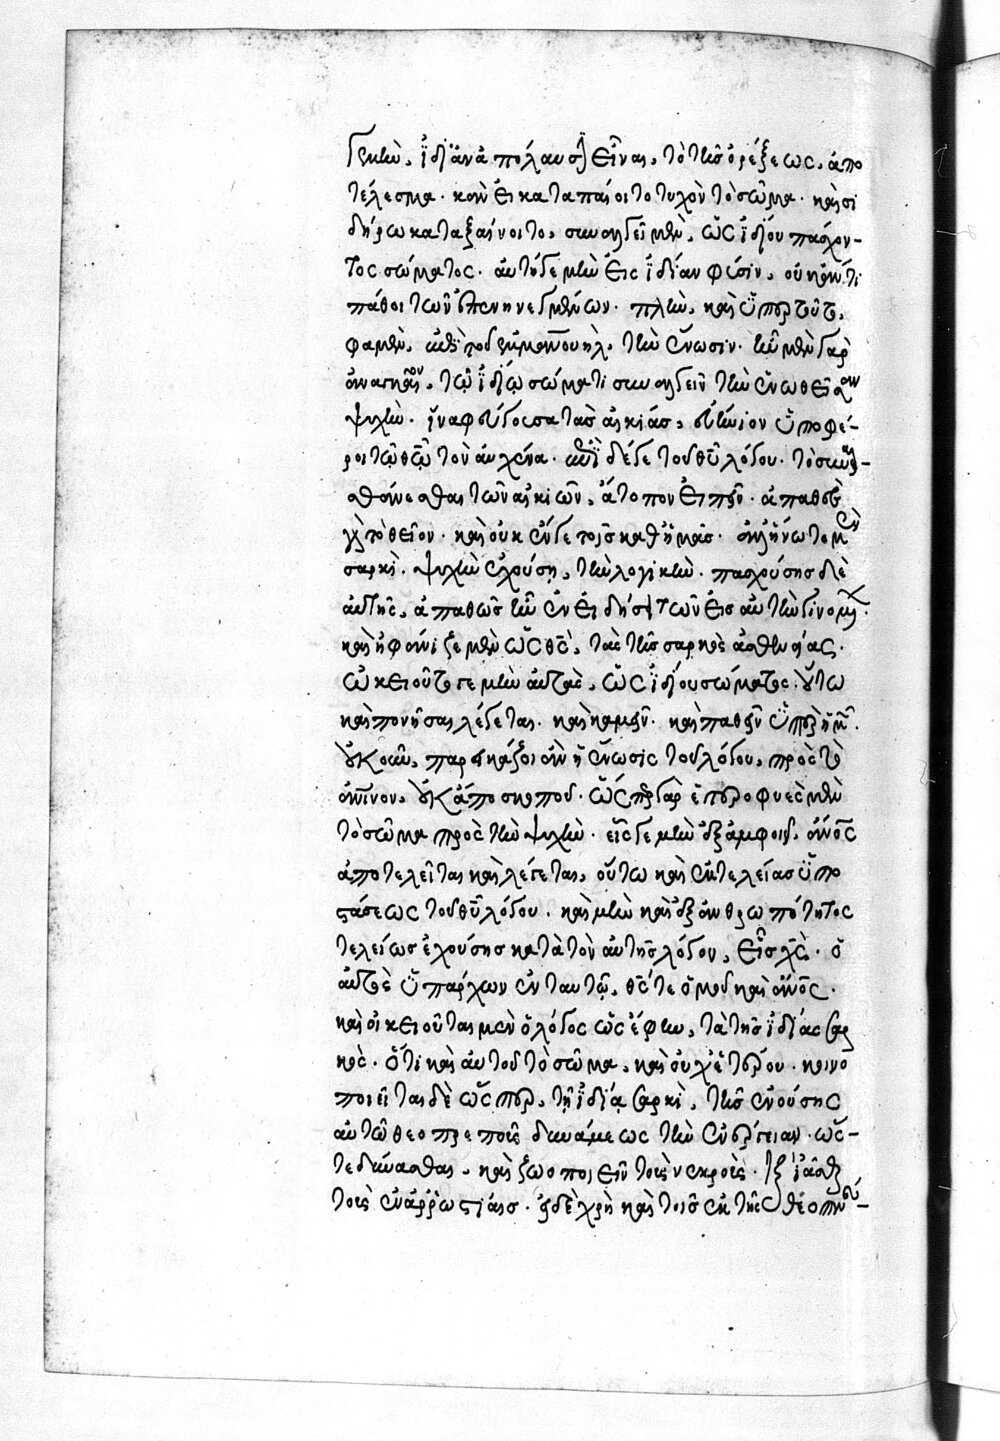 γεικὴν, ἰδίαν ἀπόλαυσιν εἶναι, τὸ τῆς ὀρέξεως, ἀπο
τέλεσμα. κἂν εἰ καταπαίοιτο τυχὸν τὸ σῶμα. καὶ σι
δήρω καταξαίνοιτο, συναλγεῖ μὲν, ὡς ἰδίου πάσχον-
τος σώματος. αὐτὴ δὲ μὴν εἰς ἰδίαν φύσιν, οὐκ ἄν τι
πάθοι τῶν ἐπενηνεγμένων. πλὴν, καὶ ὑπὲρ τοῦτο,
φαμὲν, ἐπὶ τοῦ ἐμμανουὴλ, τὴν ἕνωσιν. ἦν μὲν γὰρ
ἀναγκαῖον, τῷ ἰδίῳ σώματι συναλγεῖν τὴν ἑνωθεῖσαν
ψυχὴν. ἵνα φεύγουσα τὰς αἰκίας, εὐήνιον ὑποφέ-
ροι τῷ θεῷ τὸν αὐχένα. ἐπὶ δέ γε τοῦ θεοῦ λόγου. τὸ συναι-
σθάνεσθαι τῶν αἰκιῶν, ἄτοπον εἰπεῖν. ἀπαθὲς
γὰρ τὸ θεῖον. καὶ οὐκ ἔν γε τοῖς καθ' ἡμᾶς. πλὴν ἥνωτο μὲν
σαρκὶ. ψυχὴν ἐχούσῃ, τὴν λογικὴν. πασχούσης δὲ
αὐτῆς, ἀπαθῶς ἦν ἐν εἰδήσει τῶν εἰς αὐτὴν γινομένων.
καὶ ἠφάνιζε μὲν ὡς θεὸς, τὰς τῆς σαρκὸς ἀσθενείας.
ὠκειοῦτό γε μὴν αὐτὰς, ὡς ἰδίου σώματος. οὕτω
καὶ πεινῆσαι λέγεται. καὶ καμεῖν. καὶ παθεῖν ὑπὲρ ἡμῶν.
οὐκοῦν, παρεικάζοι ἂν ἡ ἕνωσις τοῦ λόγου, πρὸς τὸ
ἀνθρώπινον, οὐκ ἀπὸ σκοποῦ. ὥσπερ γὰρ ἑτεροφυὲς μὲν
τὸ σῶμα πρὸς τὴν ψυχὴν. εἷς γε μὴν ἐξ ἀμφοῖν, ἄνθρωπος
ἀποτελεῖται καὶ λέγεται, οὕτω καὶ ἐκ τελείας ὑπο
στάσεως τοῦ θεοῦ λόγου. καὶ μὴν καὶ ἐξ ἀνθρωπότητος
τελείως ἐχούσης κατὰ τὸν αὐτῆς λόγον, εἷς χριστὸς. ὁ
αὐτὸς ὑπάρχων ἐν ταυτῷ, θεός τε ὁμοῦ καὶ ἄνθρωπος.
καὶ οἰκειοῦται μὲν ὁ λόγος ὡς ἔφην, τὰ τῆς ἰδίας σαρ
κὸς. ὅτι καὶ αὐτοῦ τὸ σῶμα, καὶ οὐχ ἑτέρου. κοινο
ποιεῖται δὲ ὥσπερ, τῇ ἰδίᾳ σαρκὶ, τῆς ἐνούσης
αὐτῷ θεοπρεποῦς δυνάμεως τὴν ἐνέργειαν. ὥς-
τε δύνασθαι. καὶ ζωοποιεῖν τοὺς νεκροὺς. καὶ ἰᾶσθαι
τοὺς ἐν ἀῤῥωστίαις. εἰ δὲ χρὴ καὶ τοῖς ἐκ τῆς θεοπνεύ-